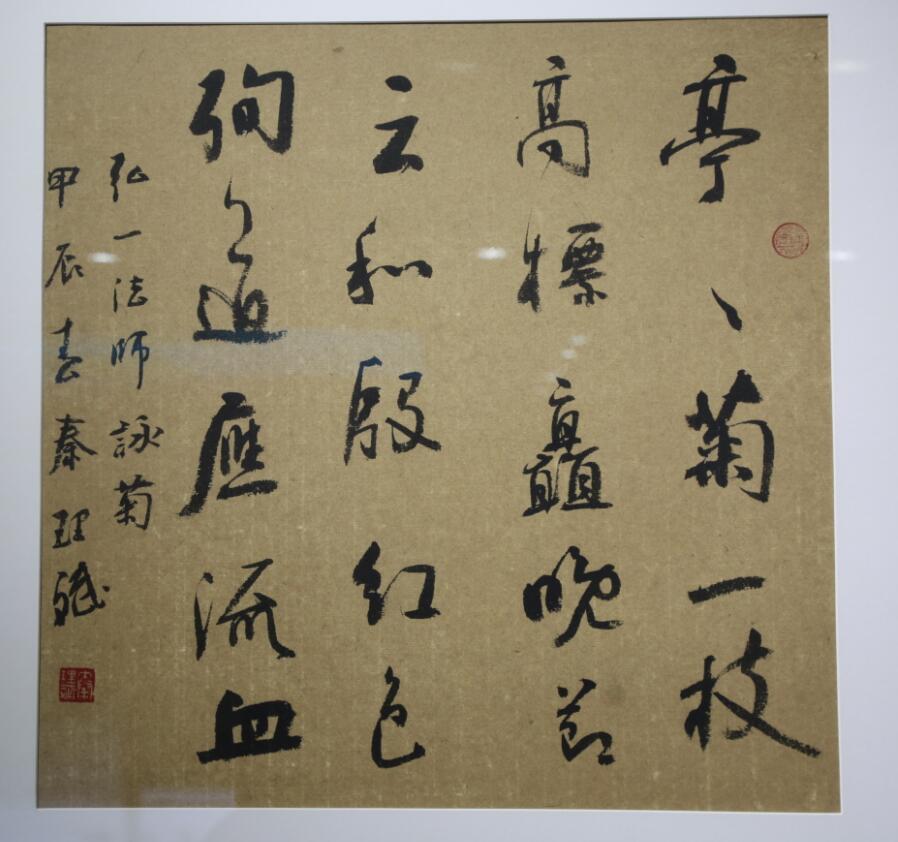 亭、菊一枝
高標矗晚節
云和殷红色
殉道應流血
弘一法師詠菊
甲辰春秦理斌